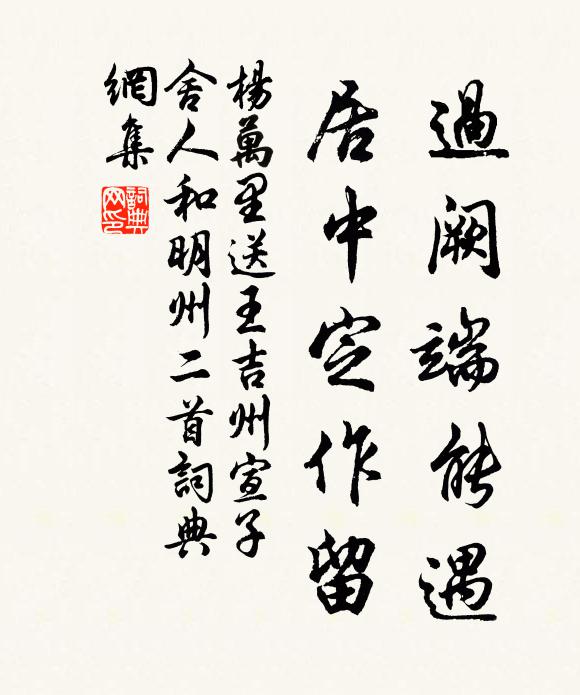 過闕端能遇
居中定作留
楊萬里送王吉州宣子
舍人和明州二首詞典
網集
詞典
网印